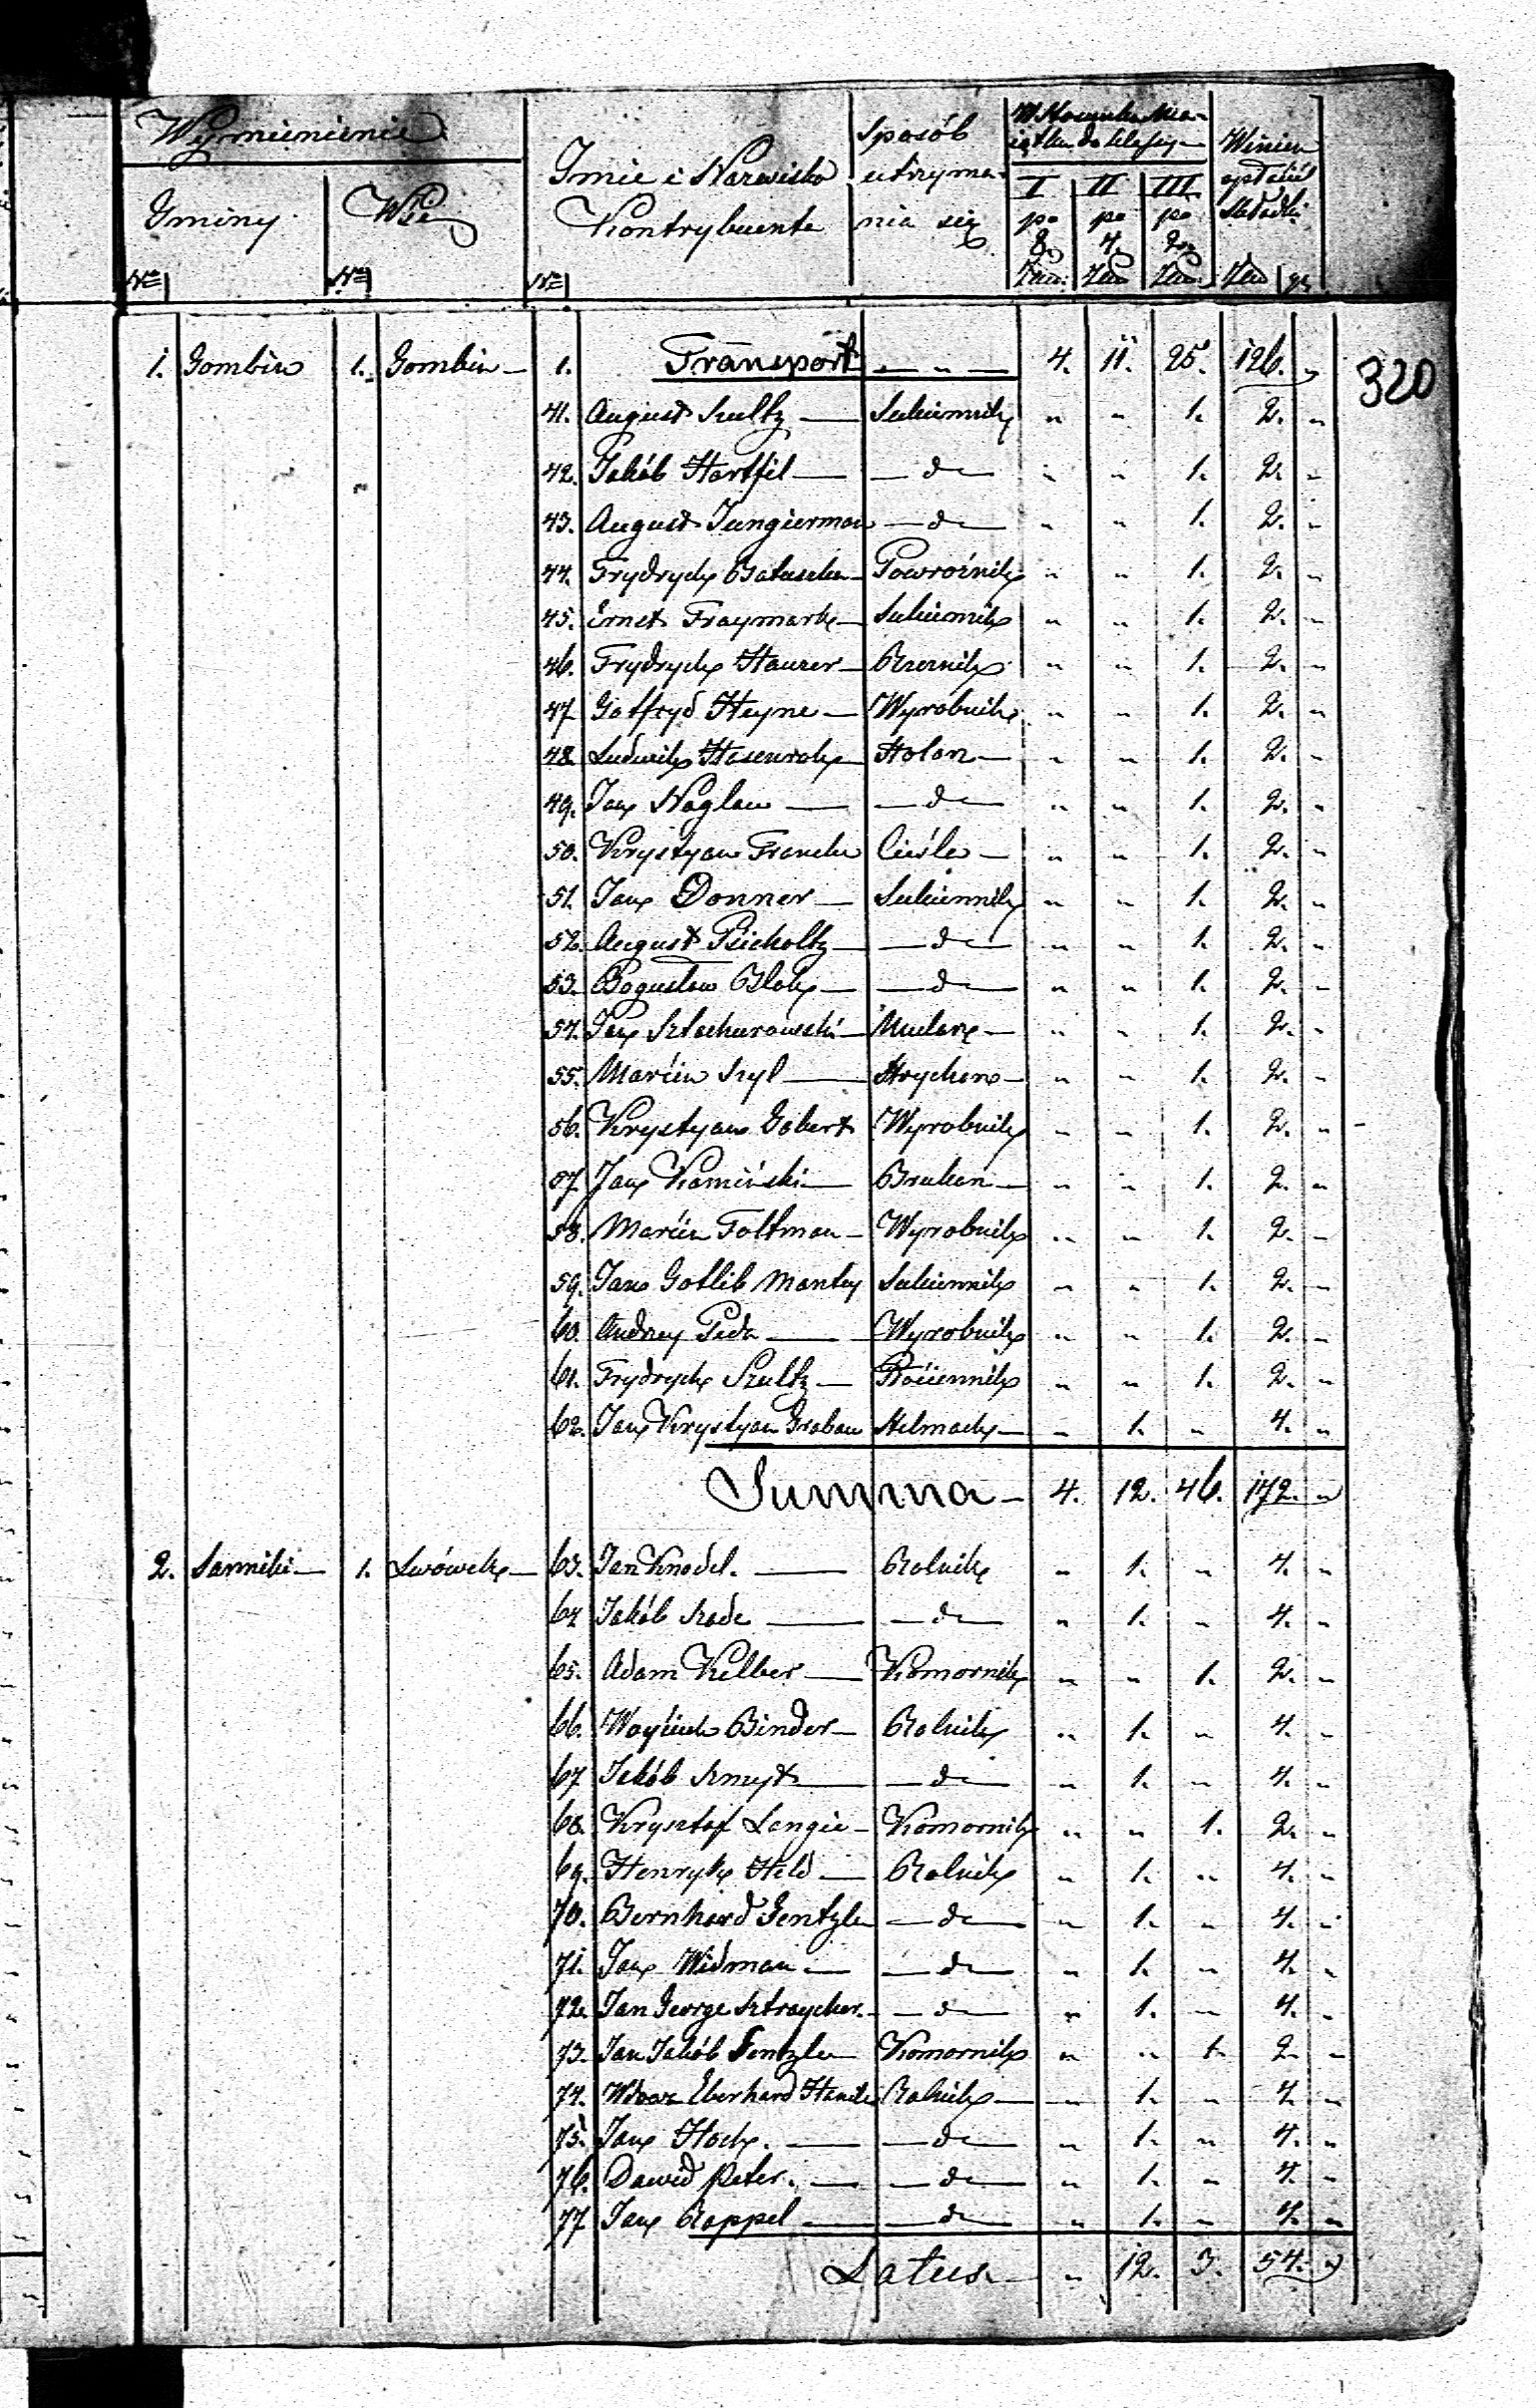 Wymienienie
Gminy
Wsie
Imie i Nazwisko
Kontrybuenta
Sposób
utrzyma=
nia się
W Stosunku Ma=
iątku do klassy
I II III
po po po
8. 4. 2.
Winien
opłacić
Składki
No No No
1. Gombin 1. Gombin 1. Transport 4. 11. 25. 126. "
320
41. August Szultz Sukiennik " " 1. 2. "
42. Jakób Hartfil do " " 1. 2. "
43. August Jungierman do " " 1. 2. "
44. Frydrych Powroźnik " " 1. 2. "
45. Ernst Fraymark Sukiennik " " 1. 2. "
46. Frydrych Hauzer Rzeznik " " 1. 2. "
47. Gotfryd Heyne Wyrobnik " " 1. 2. "
48. Ludwik " " 1. 2. "
49. Jan Naglau do " " 1. 2. "
50. Krystyan Franke Cieśla " " 1. 2. "
51. Jan Donner Sukiennik " " 1. 2. "
52. August do " " 1. 2. "
53. Bogusław Blok do " " 1. 2. "
54. Jan Mularz " " 1. 2. "
55. Marcin Szyl Strycharz " " 1. 2. "
56. Krystyan Gobert Wyrobnik " " 1. 2. "
57. Jan Kamiński Brukarz " " 1. 2. "
58. Marcin Foltman Wyrobnik " " 1. 2. "
59. Jan Gotlib Mantey Sukiennik " " 1. 2. "
60. Andrzey Wyrobnik " " 1. 2. "
61. Frydrych Szultz Płóciennik " " 1. 2. "
62. Jan Krystyan Grabau Stelmach " 1. " 4. "
Summa 4. 12. 46. 172. "
2. Sanniki 1. Lwówek 63. Jan Knodel. Rolnik " 1. " 4. "
64. Jakób Szade do " 1. " 4. "
65. Adam Kelber Komornik " " 1. 2. "
66. Woyciech Binder Rolnik " 1. " 4. "
67. Jakób Szmyt do " 1. " 4. "
68. Krysztof Langie Komornik " " 1. 2. "
69. Henryk Held Rolnik " 1. " 4. "
70. Bernhard Gentzle do " 1. " 4. "
71. Jan Widman do " 1. " 4. "
72. Jan George Sztraycher. do " 1. " 4. "
73. Jan Jakób Komornik " " 1. 2. "
74. Eberhard Rolnik " 1. " 4. "
75. Jan Hoch. do " 1. " 4. "
76. Dawid Peter. do " 1. " 4. "
77. Jan Rappel do " 1. " 4. "
Latus " 12. 3. 54. "